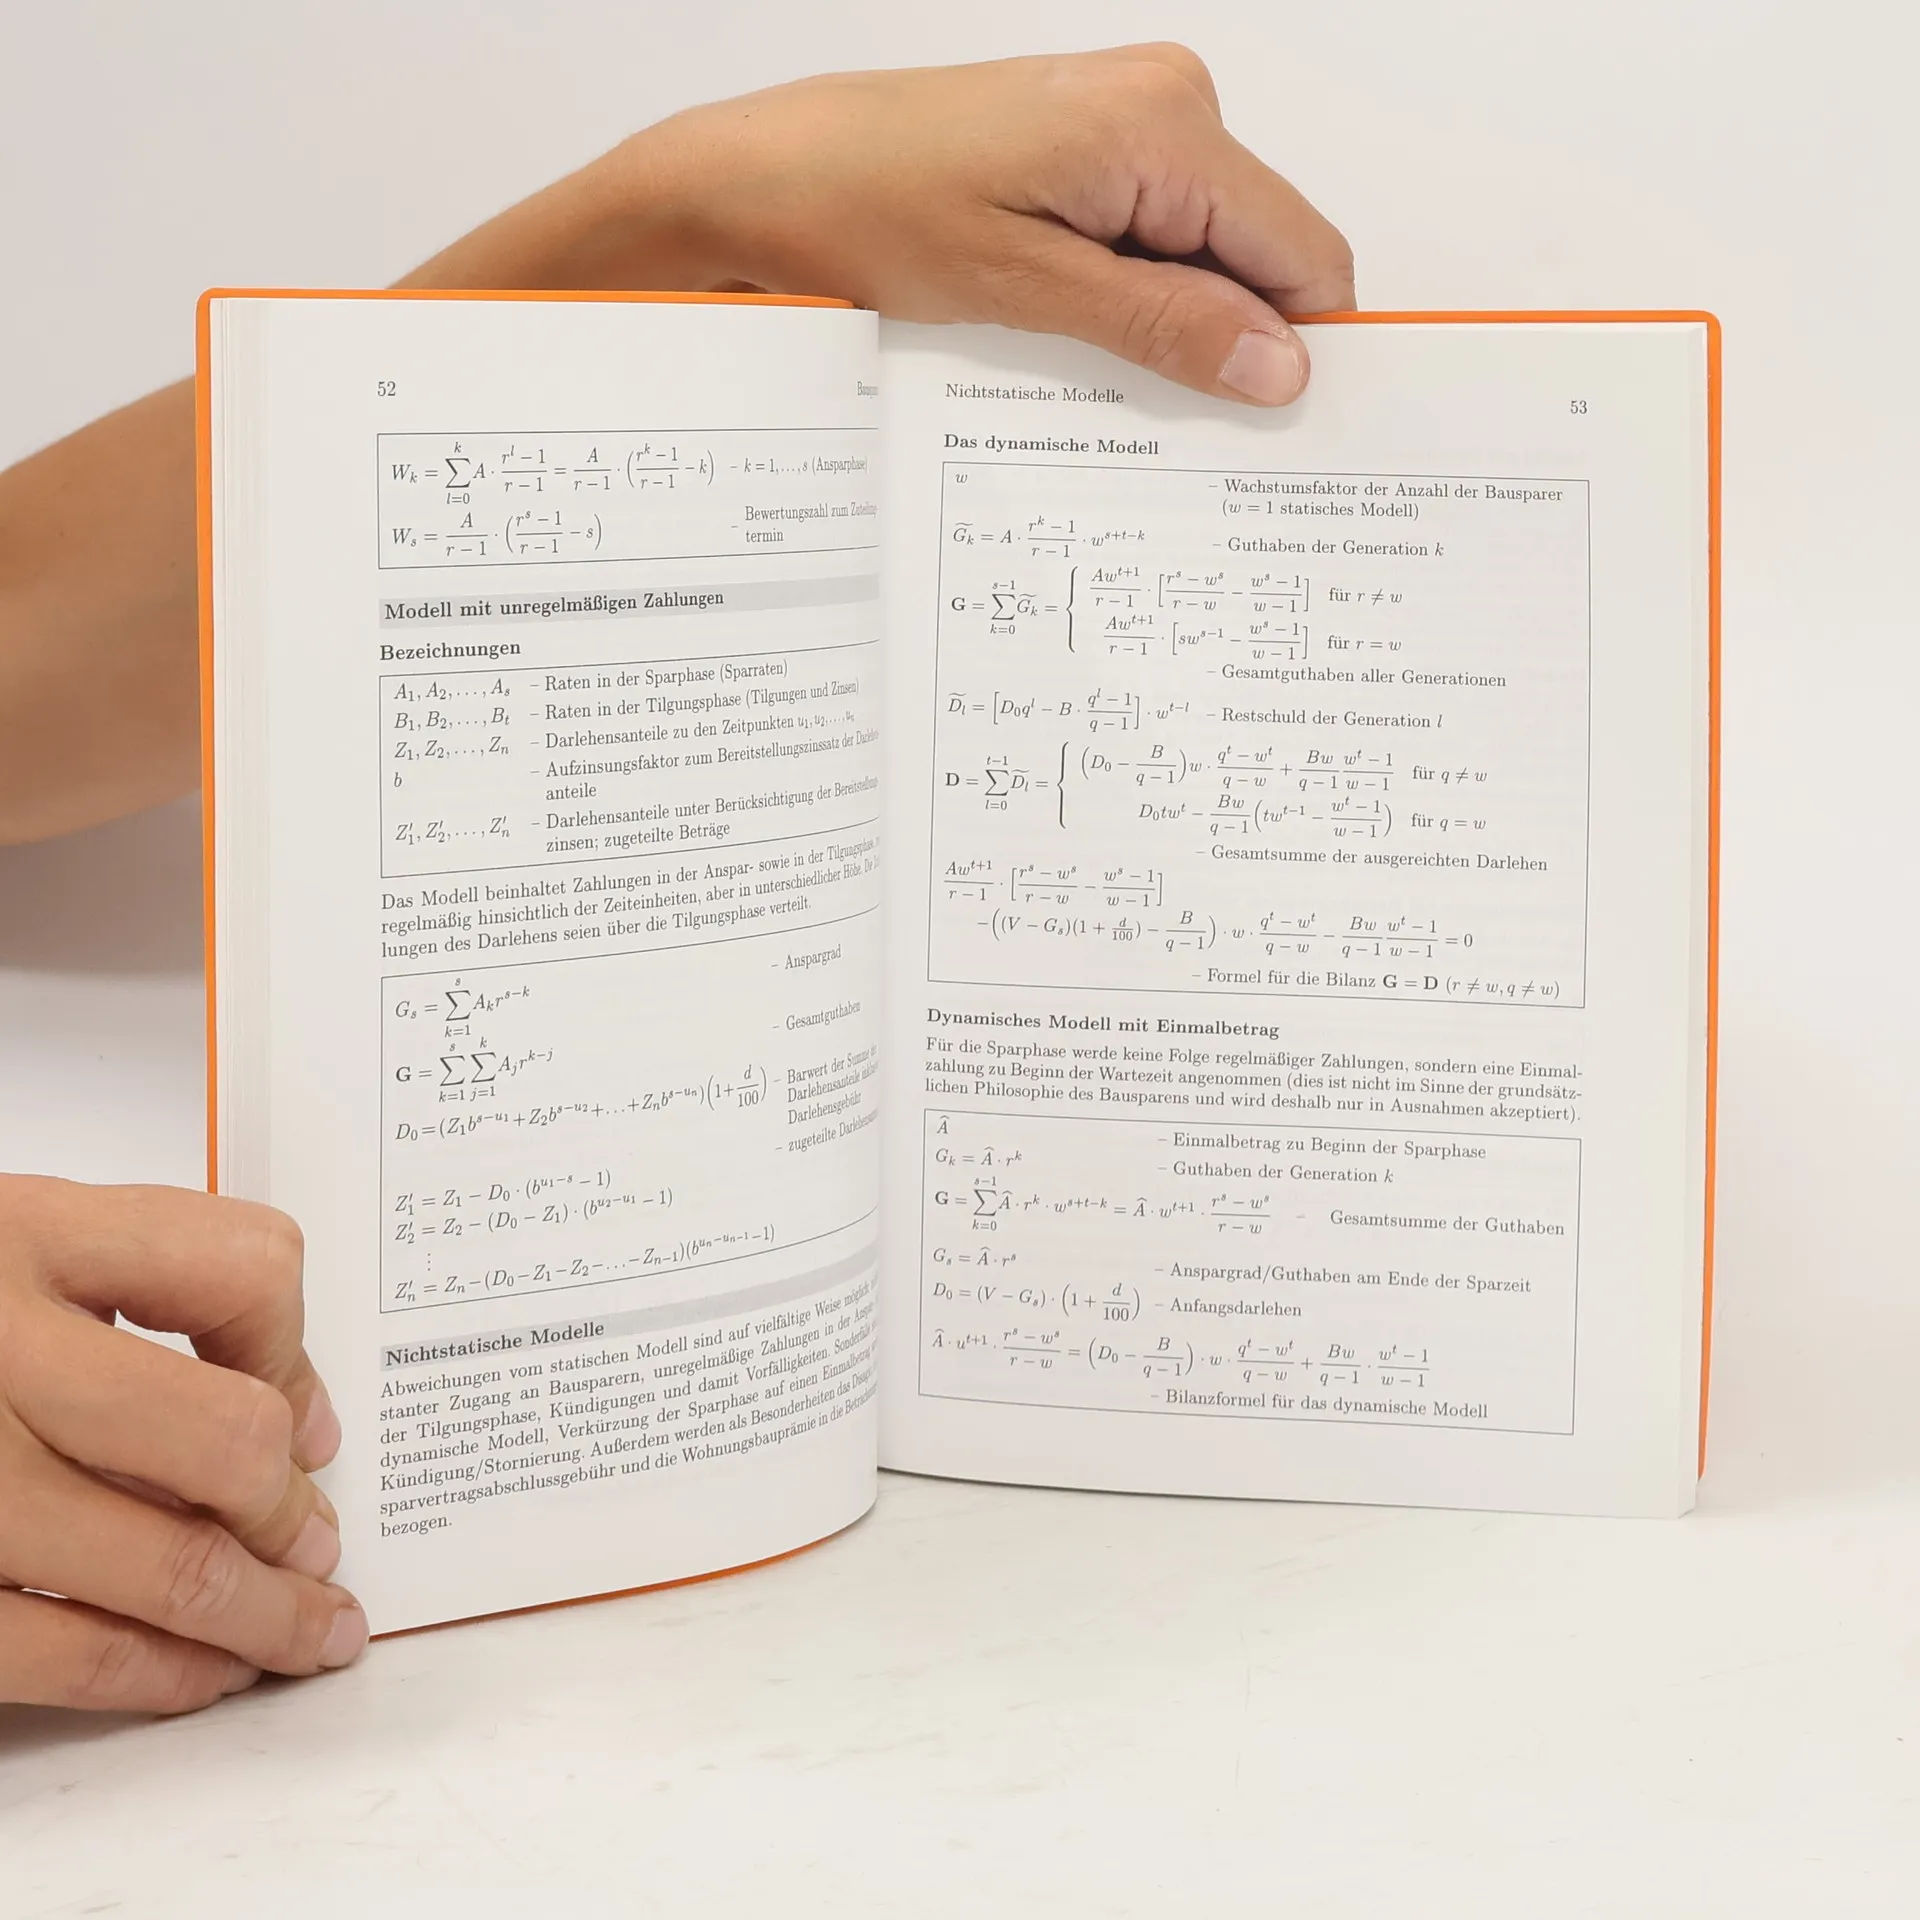 52
W_k = \sum_{l=0}^{k} A · \frac{r^l − 1}{r − 1} = \frac{A}{r − 1} · (\frac{r^k − 1}{r − 1} − k) – k = 1, . . . , s (Ansparphase)
W_s = \frac{A}{r − 1} · (\frac{r^s − 1}{r − 1} − s) – Bewertungszahl zum
termin
Modell mit unregelmäßigen Zahlungen
Bezeichnungen
A_1, A_2, . . . , A_s – Raten in der Sparphase (Sparraten)
B_1, B_2, . . . , B_t – Raten in der Tilgungsphase (Tilgungen und Zinsen)
Z_1, Z_2, . . . , Z_n – Darlehensanteile zu den Zeitpunkten u_1, u_2, . . . , u_n
b – Aufzinsungsfaktor zum Bereitstellungszinssatz der
anteile
Z'_1, Z'_2, . . . , Z'_n – Darlehensanteile unter Berücksichtigung der
zinsen; zugeteilte Beträge
Das Modell beinhaltet Zahlungen in der Anspar- sowie in der Tilgungsphase,
regelmäßig hinsichtlich der Zeiteinheiten, aber in unterschiedlicher Höhe. Die
lungen des Darlehens seien über die Tilgungsphase verteilt.
G_s = \sum_{k=1}^{s} A_k r^{s−k} – Anspargrad
G = \sum_{k=1}^{s} \sum_{j=1}^{k} A_j r^{k−j} – Gesamtguthaben
D_0 = (Z_1 b^{s−u_1} + Z_2 b^{s−u_2} + . . . + Z_n b^{s−u_n})(1 + \frac{d}{100}) – Barwert der Summe
Darlehensanteile
Darlehensgebühr
– zugeteilte
Z'_1 = Z_1 − D_0 · (b^{u_1−s} − 1)
Z'_2 = Z_2 − (D_0 − Z_1) · (b^{u_2−u_1} − 1)
⋮
Z'_n = Z_n − (D_0 − Z_1 − Z_2 − . . . − Z_{n−1})(b^{u_n−u_{n−1}} − 1)
Nichtstatische Modelle
Abweichungen vom statischen Modell sind auf vielfältige Weise möglich:
stanter Zugang an Bausparern, unregelmäßige Zahlungen in der
der Tilgungsphase, Kündigungen und damit Vorfälligkeiten. Sonderfälle
dynamische Modell, Verkürzung der Sparphase auf einen Einmalbetrag
Kündigung/Stornierung. Außerdem werden als Besonderheiten das
sparvertragsabschlussgebühr und die Wohnungsbauprämie in die
bezogen.
Nichtstatische Modelle
53
Das dynamische Modell
w – Wachstumsfaktor der Anzahl der Bausparer
(w = 1 statisches Modell)
\widetilde{G_k} = A · \frac{r^k − 1}{r − 1} · w^{s+t−k} – Guthaben der Generation k
G = \sum_{k=0}^{s−1} \widetilde{G_k} = { \frac{Aw^{t+1}}{r − 1} · [\frac{r^s − w^s}{r − w} − \frac{w^s − 1}{w − 1}] für r ≠ w
\frac{Aw^{t+1}}{r − 1} · [sw^{s−1} − \frac{w^s − 1}{w − 1}] für r = w
– Gesamtguthaben aller Generationen
\widetilde{D_l} = [D_0 q^l − B · \frac{q^l − 1}{q − 1}] · w^{t−l} – Restschuld der Generation l
D = \sum_{l=0}^{t−1} \widetilde{D_l} = { (D_0 − \frac{B}{q − 1})w · \frac{q^t − w^t}{q − w} + \frac{Bw}{q − 1} \frac{w^t − 1}{w − 1} für q ≠ w
D_0 tw^t − \frac{Bw}{q − 1}(tw^{t−1} − \frac{w^t − 1}{w − 1}) für q = w
– Gesamtsumme der ausgereichten Darlehen
\frac{Aw^{t+1}}{r − 1} · [\frac{r^s − w^s}{r − w} − \frac{w^s − 1}{w − 1}]
−((V − G_s)(1 + \frac{d}{100}) − \frac{B}{q − 1}) · w · \frac{q^t − w^t}{q − w} − \frac{Bw}{q − 1} \frac{w^t − 1}{w − 1} = 0
– Formel für die Bilanz G = D (r ≠ w, q ≠ w)
Dynamisches Modell mit Einmalbetrag
Für die Sparphase werde keine Folge regelmäßiger Zahlungen, sondern eine Einmal-
zahlung zu Beginn der Wartezeit angenommen (dies ist nicht im Sinne der grundsätz-
lichen Philosophie des Bausparens und wird deshalb nur in Ausnahmen akzeptiert).
\widehat{A} – Einmalbetrag zu Beginn der Sparphase
G_k = \widehat{A} · r^k – Guthaben der Generation k
G = \sum_{k=0}^{s−1} \widehat{A} · r^k · w^{s+t−k} = \widehat{A} · w^{t+1} · \frac{r^s − w^s}{r − w} – Gesamtsumme der Guthaben
G_s = \widehat{A} · r^s – Anspargrad/Guthaben am Ende der Sparzeit
D_0 = (V − G_s) · (1 + \frac{d}{100}) – Anfangsdarlehen
\widehat{A} · u^{t+1} · \frac{r^s − w^s}{r − w} = (D_0 − \frac{B}{q − 1}) · w · \frac{q^t − w^t}{q − w} + \frac{Bw}{q − 1} · \frac{w^t − 1}{w − 1}
– Bilanzformel für das dynamische Modell